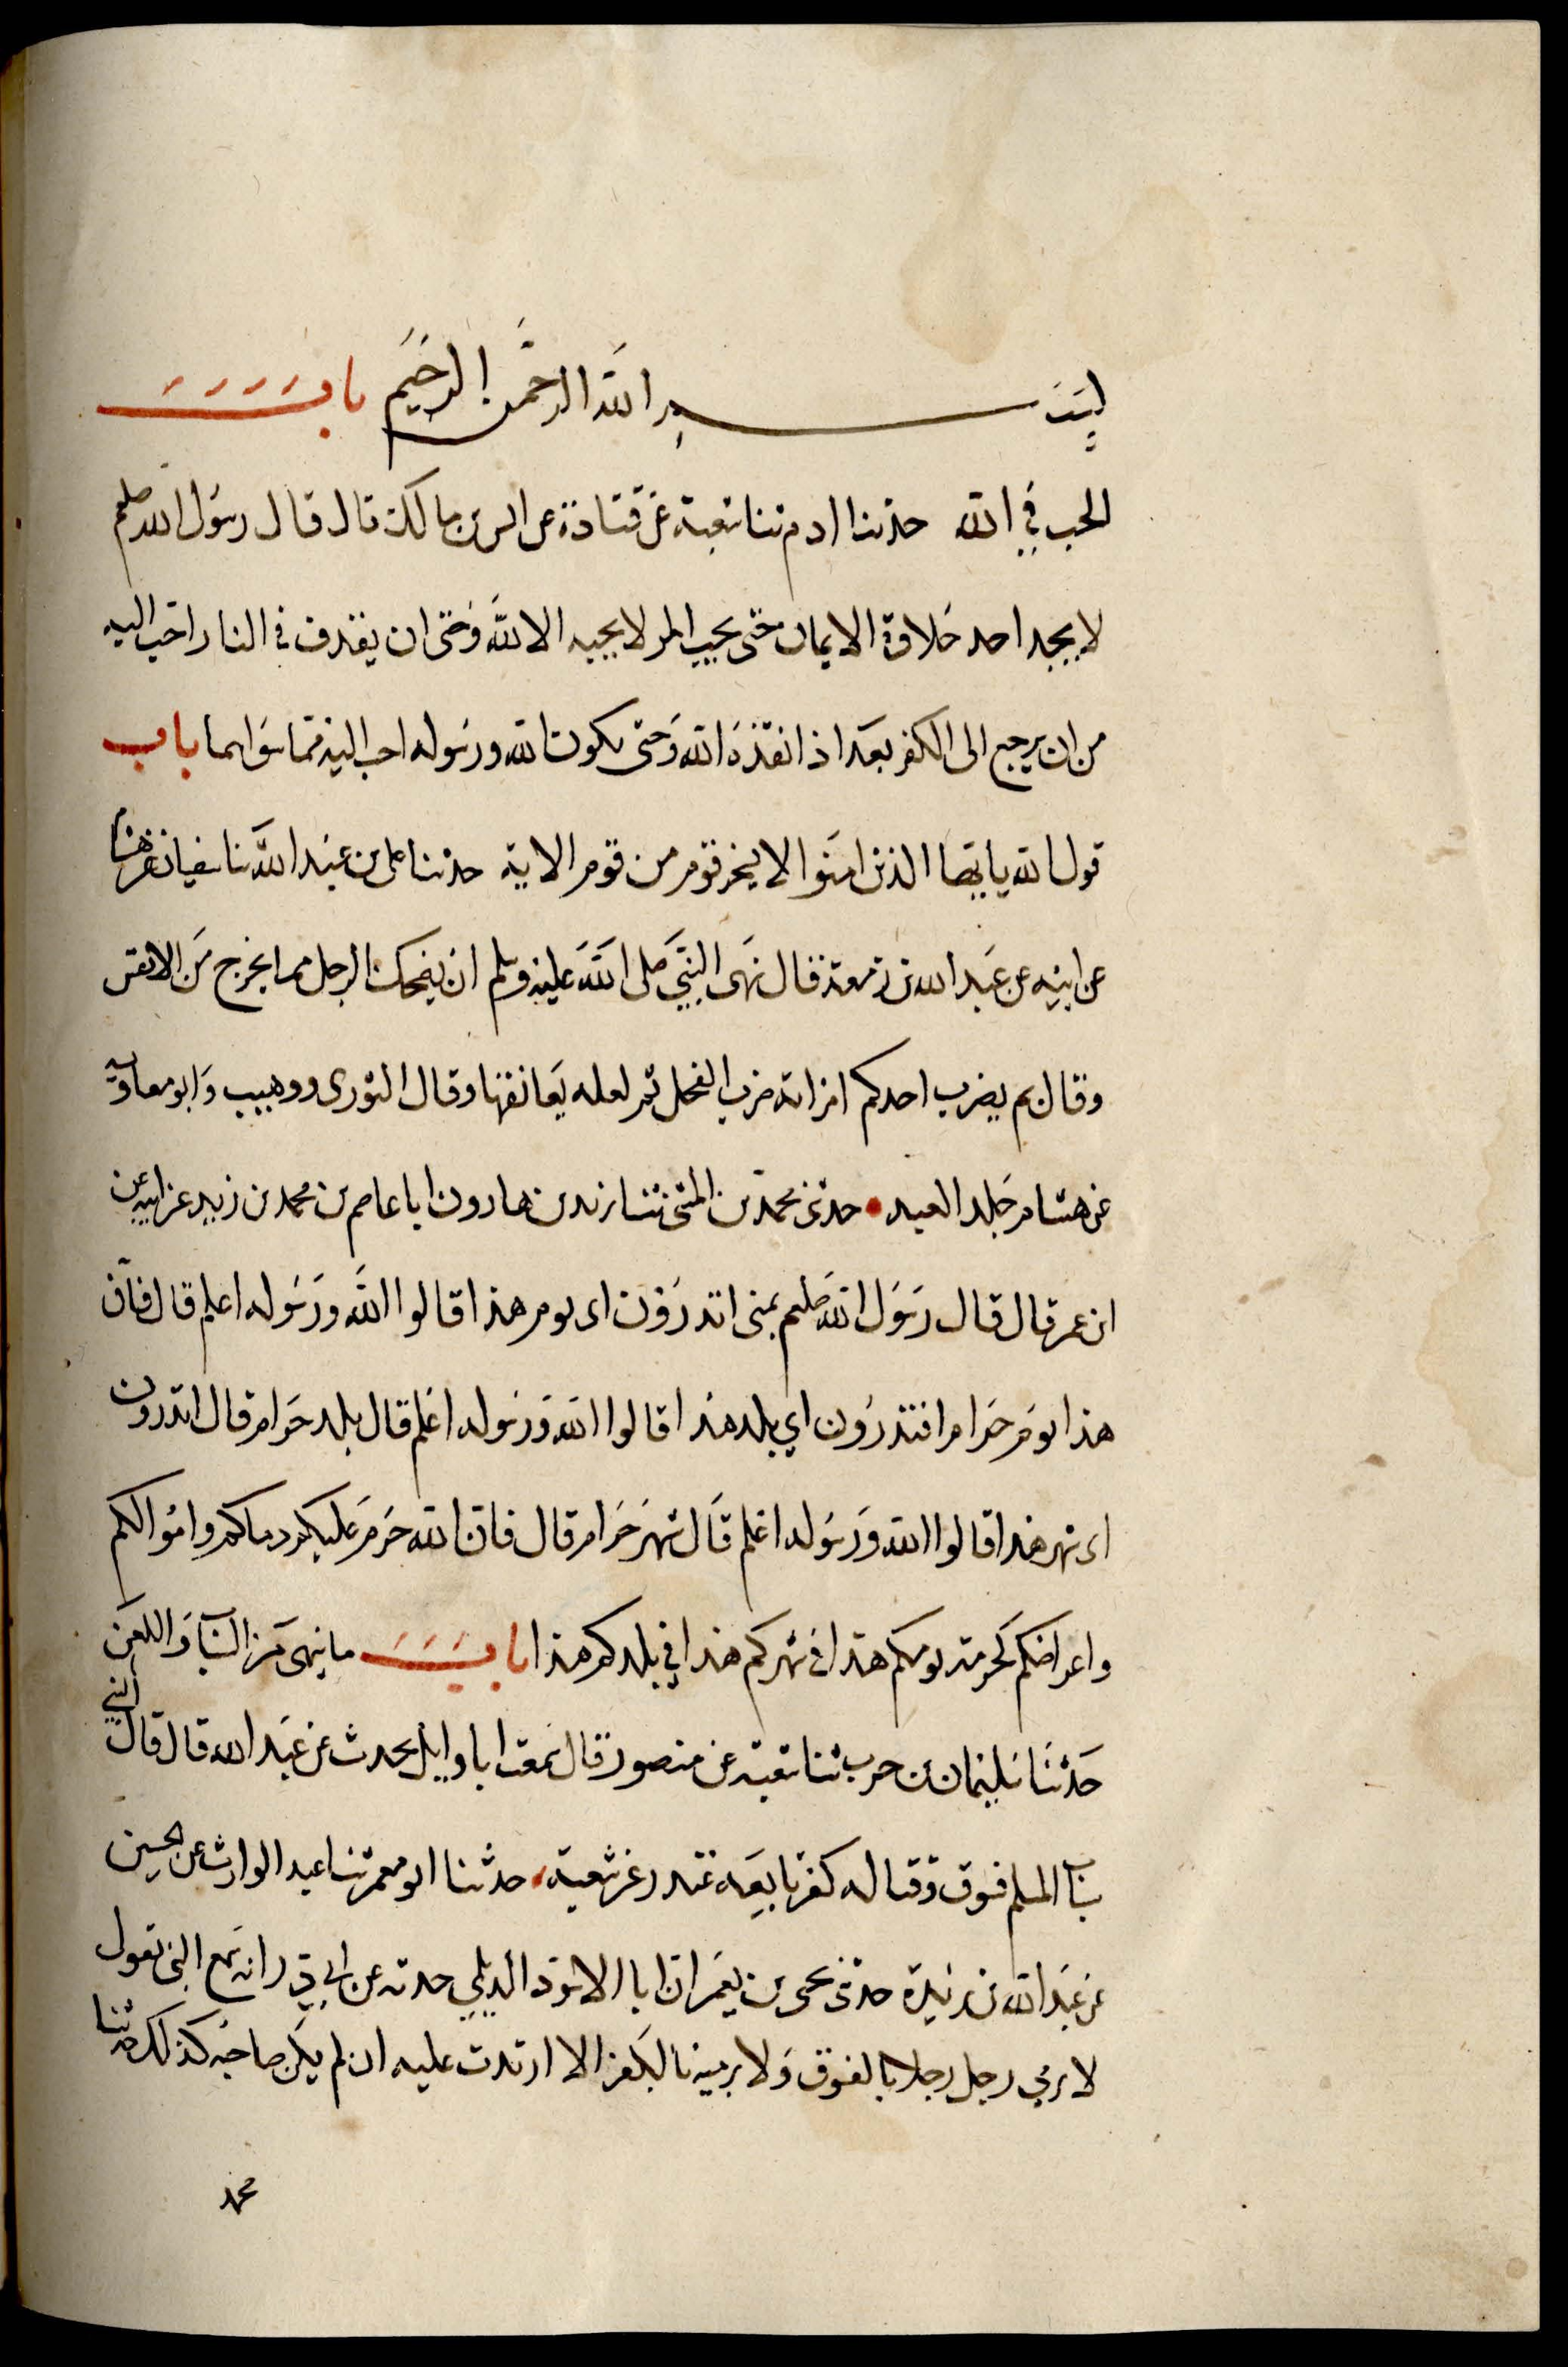 بسم الله الرحمن الرحيم باب
الحب في الله حدثنا ادم ثنا شعبة عن قتادة عن انس بن مالك قال قال رسول الله صلعم
لا يجد احد حلاوة الايمان حتى يحب المر لا يحبه الا لله وحتى ان يقذف في النار احب اليه
من ان يرجع الى الكفر بعد اذ انقذه الله وحتى يكون الله ورسوله احب اليه مما سواهما باب
قول الله يا ايها الذين امنوا لا يسخر قوم من قوم الاية حدثنا على بن عبد الله ثنا سفيان عن هشام
عن ابيه عن عبد الله بن زمعة قال نهى النبي صلى الله عليه وسلم ان يضحك الرجل مما يخرج من الانفس
وقال بم يضرب احدكم امراته ضرب الفحل ثم لعله يعانقها وقال الثورى ووهيب وابو معاوية
عن هشام جلد العبد حدثنى محمد بن المثنى ثنا يزيد بن هارون انا عاصم بن محمد بن زيد عن ابيه عن
ابن عمر قال قال رسول الله صلعم بمنى اتدرون اى يوم هذا قالوا الله ورسوله اعلم قال فان
هذا يوم حرام افتدرون اي بلد هذا قالوا الله ورسوله اعلم قال بلد حرام قال اتدرون
اى شهر هذا قالوا الله ورسوله اعلم قال شهر حرام قال فان الله حرم عليكم دماكم واموالكم
واعراضكم كحرمة يومكم هذا في شهركم هذا في بلدكم هذا باب ما ينهى من السباب واللعن
حدثنا سليمان بن حرب ثنا شعبة عن منصور قال سمعت ابا وايل يحدث عن عبد الله قال قال النبي
سباب المسلم فسوق وقتاله كفر تابعه غندر عن شعبة حدثنا ابو معمر ثنا عبد الوارث عن الحسين
عن عبد الله بن بريدة حدثنى يحيى بن يعمر ان ابا الاسود الديلي حدثه عن ابي ذر انه سمع النبي يقول
لا يرمي رجل رجلا بالفسوق ولا يرميه بالكفر الا ارتدت عليه ان لم يكن صاحبه كذلك حدثنا
محمد